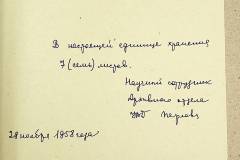 В настоящей единице хранения
7 (семь) листов.
Научный сотрудник
Архивного отдела
28 ноября 1958 года